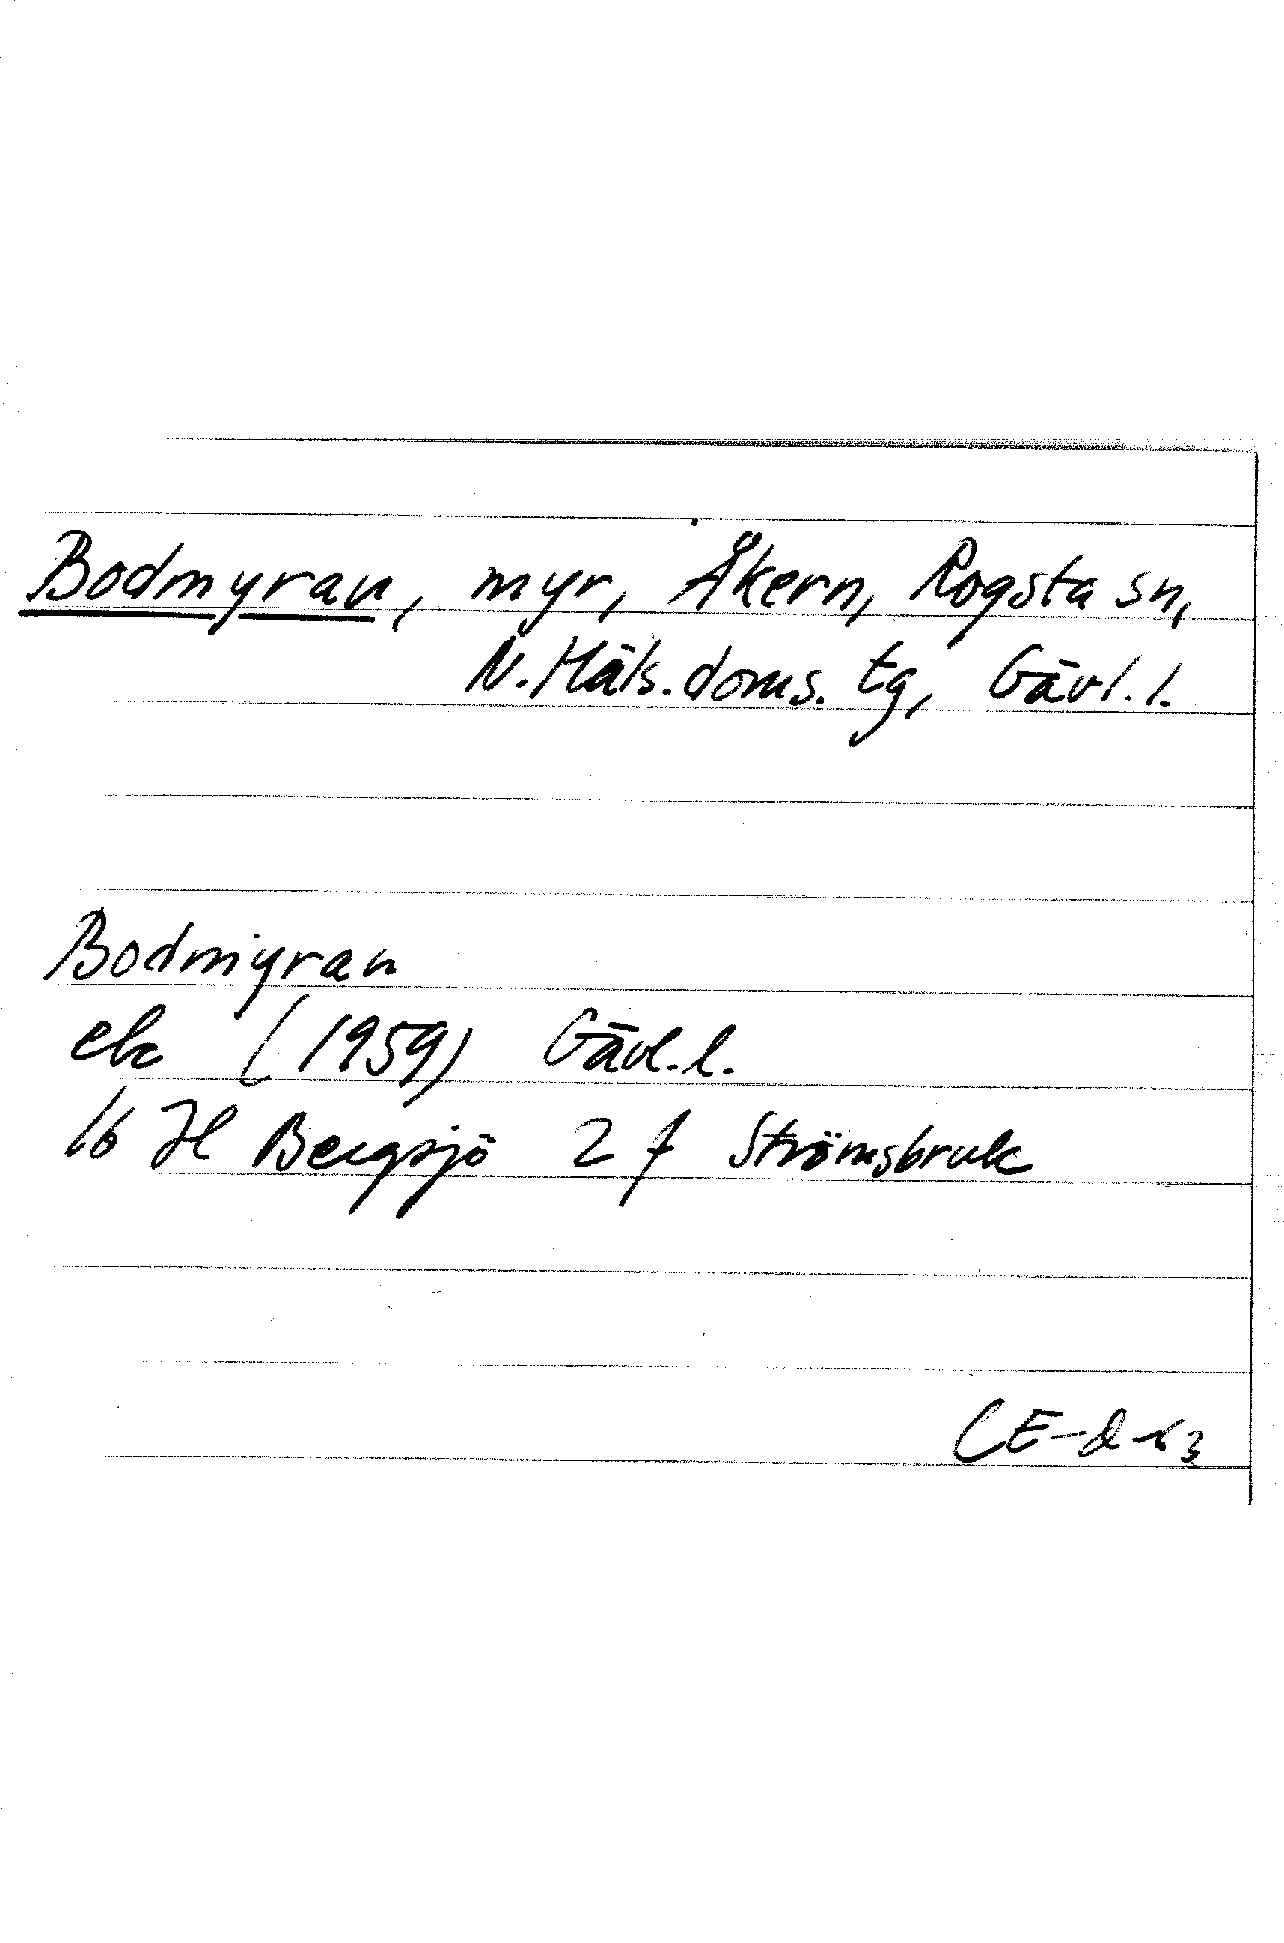 Bodmyran, myr, Åkern, Rogsta sn,
N. Häls. doms. tg, Gävl. l.
Bodmyran
ek (1959) Gävl. l.
16 H Bergsjö 2 f Strömsbruk
CE-d-63